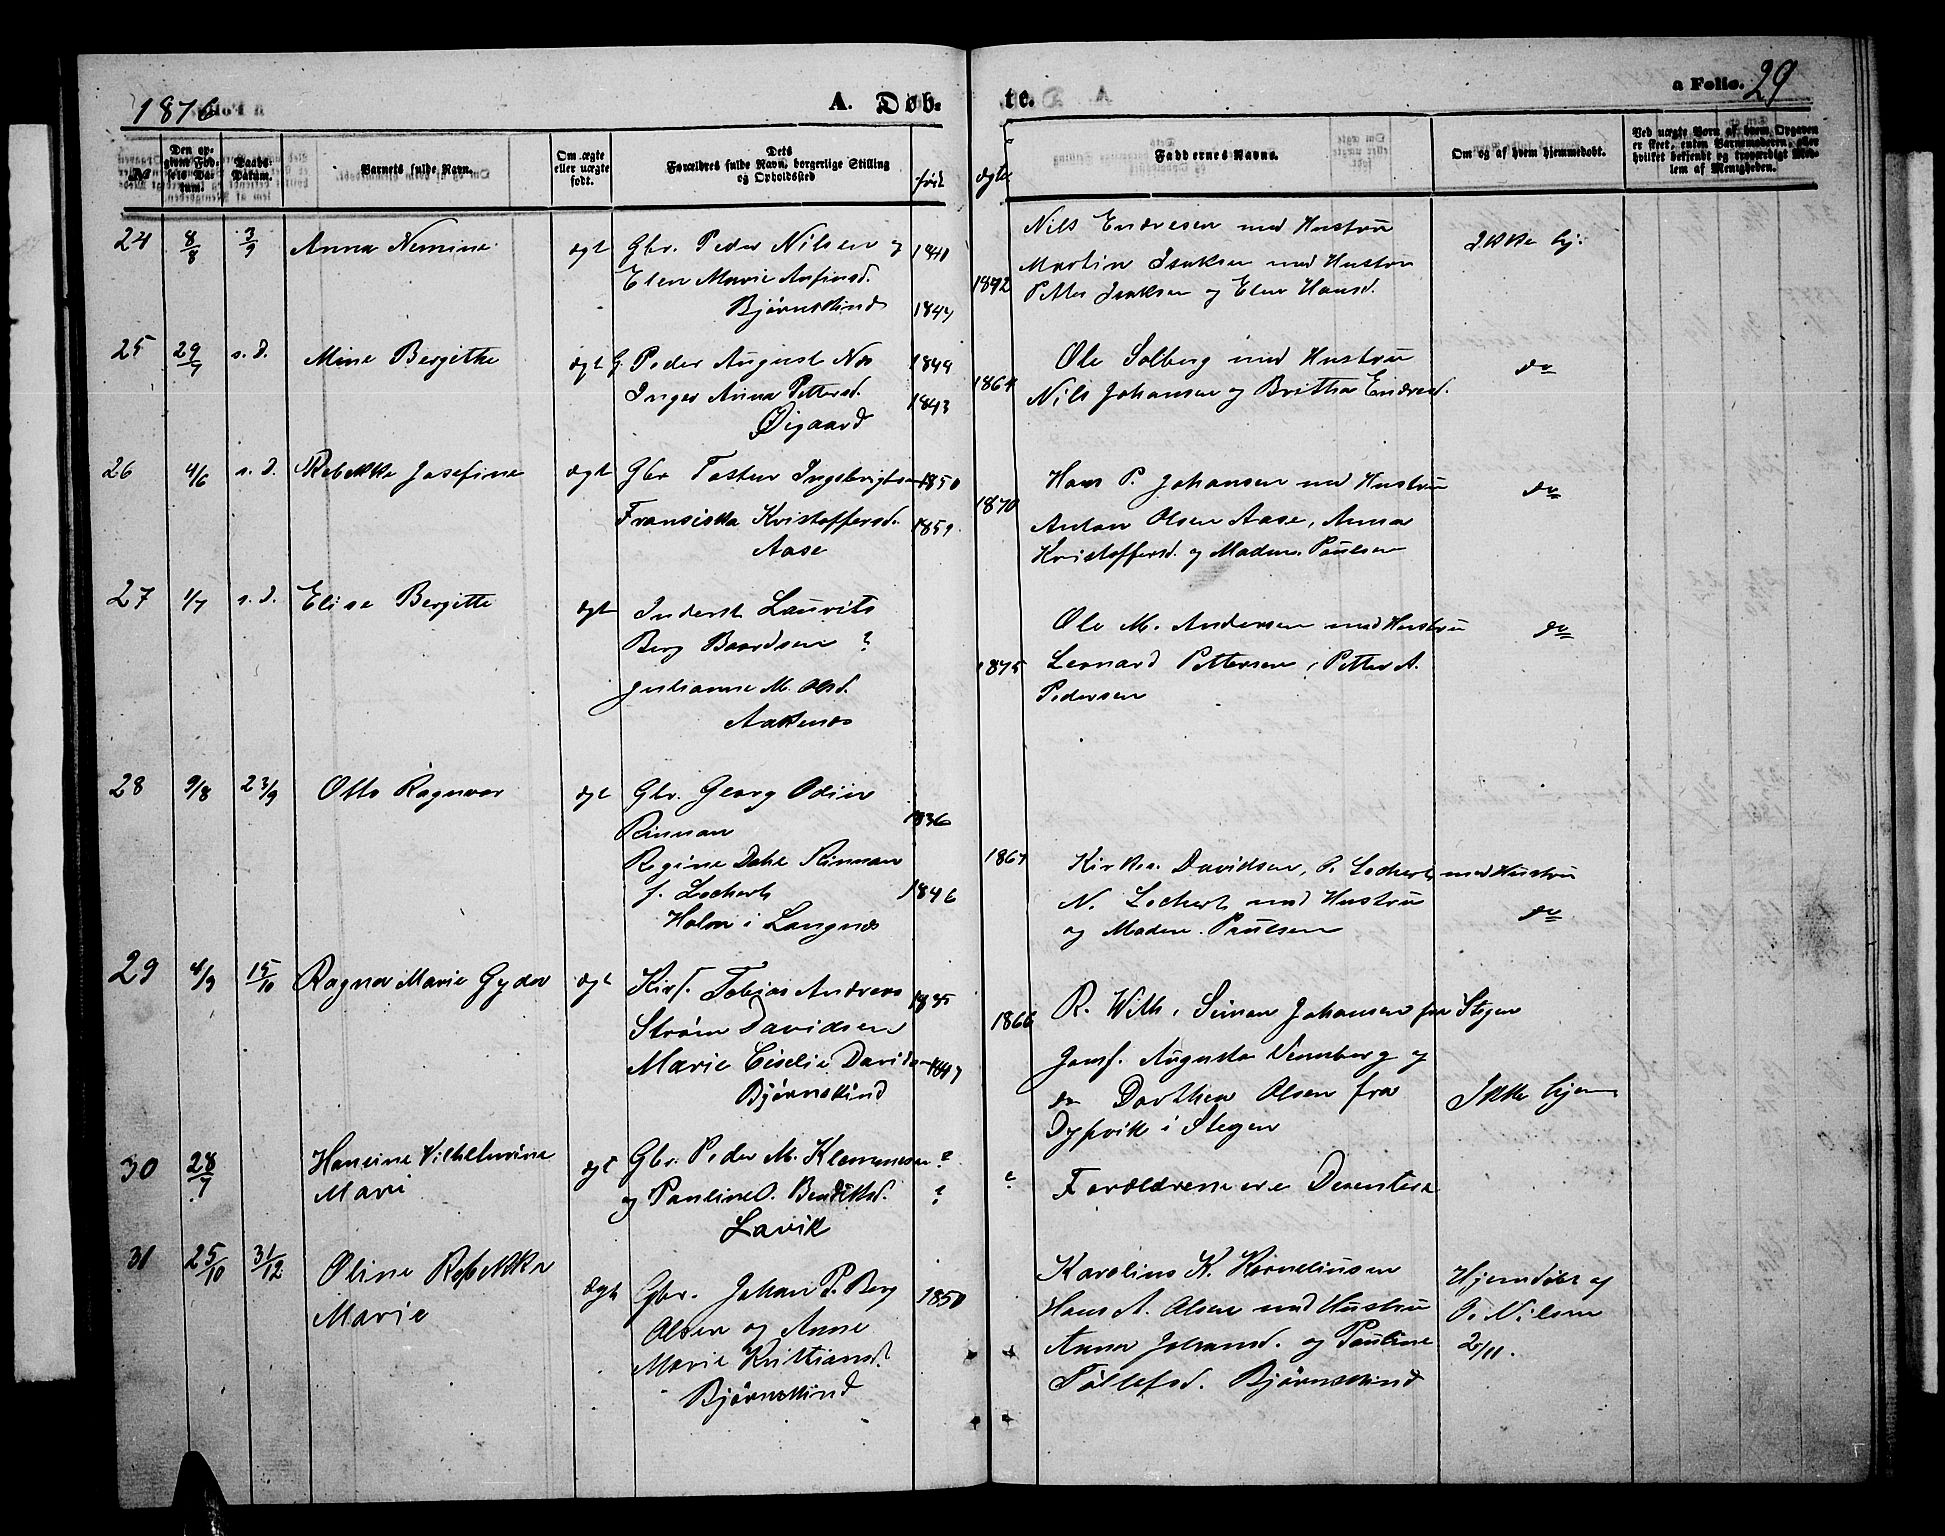 1876
A. Døb-
te.
a Folio. 29
№
Den op-
given Fød-
sels Da-
tum.
Daabs-
Datum.
Barnets fulde Navn.
Om ægte
eller uægte
født.
Dets
Forældres fulde Navn, borgerlige Stilling
og Opholdssted
født
ægte
Faddernes Navne.
Om og af hvem hjemmedøbt.
Ved uægte Børn af hvem Opgaven
er skeet, enten Barnmoderen, eller
hvilket bekjendt og troværdigt Med-
lem af Menigheden.
24 8/8 3/9 Anna Nemine ægt Gbr. Peder Nilsen og 1840
Elen Marie Arfinsd.
Bjørnskind 1844
Nils Endresen med Hustru Ikke hj:
Martin Isaksen med Hustru
1872 Petter Isaksen og Elen Hansd.
25 29/7 s. d. Mine Bergithe ægt G. Peder August Næs 1849
Inger Anna Pettersd. 1843
Øigaard
Ole Solberg med Hustru do
1864 Nils Johansen og Britha Endresd.
26 4/6 s. d. Rebekka Josefine ægt Gbr Tosten Ingebrigtsen 1850
Fransiska Kristoffersd. 1851
Aase
Hans P. Johansen med Hustru do
1870 Anton Olsen Aase, Anna
Kristoffersd. og Madme. Paulsen
27 1/7 s. d. Elise Bergitte ægt Inderst Lauvits
Berg Baardsen ?
Julianne M. Olsd.
Aakenæs
Ole M. Andersen med Hustru do
1875 Leonard Pettersen, Petter A.
Pedersen
28 9/8 23/9 Otto Ragnvar ægt Gbr. Georg Odin
Rinnan 1836
Regine Dahl Rinnan
f. Lochert 1846
Holm i Langnæs
1867 Kirkes. Davidsen, P. Lochert med Hustru
N. Lochert med Hustru do
og Madme. Paulsen
29 4/9 15/10 Ragna Marie Gyda ægt Kirs. Tobias Andreas 1835
Strøm Davidsen
Marie Ciselie Davidsen 1847
Bjørnskind
1866 R. With, Simon Johansen fra Stegen
Jomf. Augusta Vennberg og
do Dorthea Olsen fra Ikke hjem
Dypvik i Stegen
30 28/7 Hansine Vilhelmine
Marie ægt Gbr. Peder M. Klemmesen ?
og Pauline O. Bendiksd. ?
Lavik
? Forældrene ere Dissentere
31 25/10 31/12 Oline Rebekka
Marie ægt Gbr. Johan P. Berg 1850
Olsen og Anne
Marie Kristiansd.
Bjørnskind
Karolius K. Korneliussen Hjemdøbt af
Hans A. Olsen med Hustru O. Nilsen
Anna Johansd. og Pauline 2/11.
Tollefsd. Bjørnskind